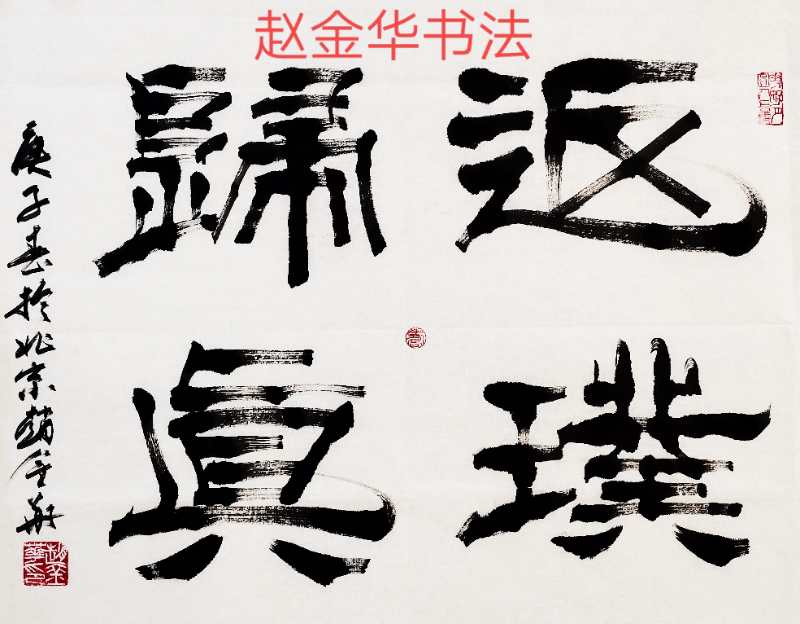 赵金华书法
返璞
歸真
庚子春於北京趙金華